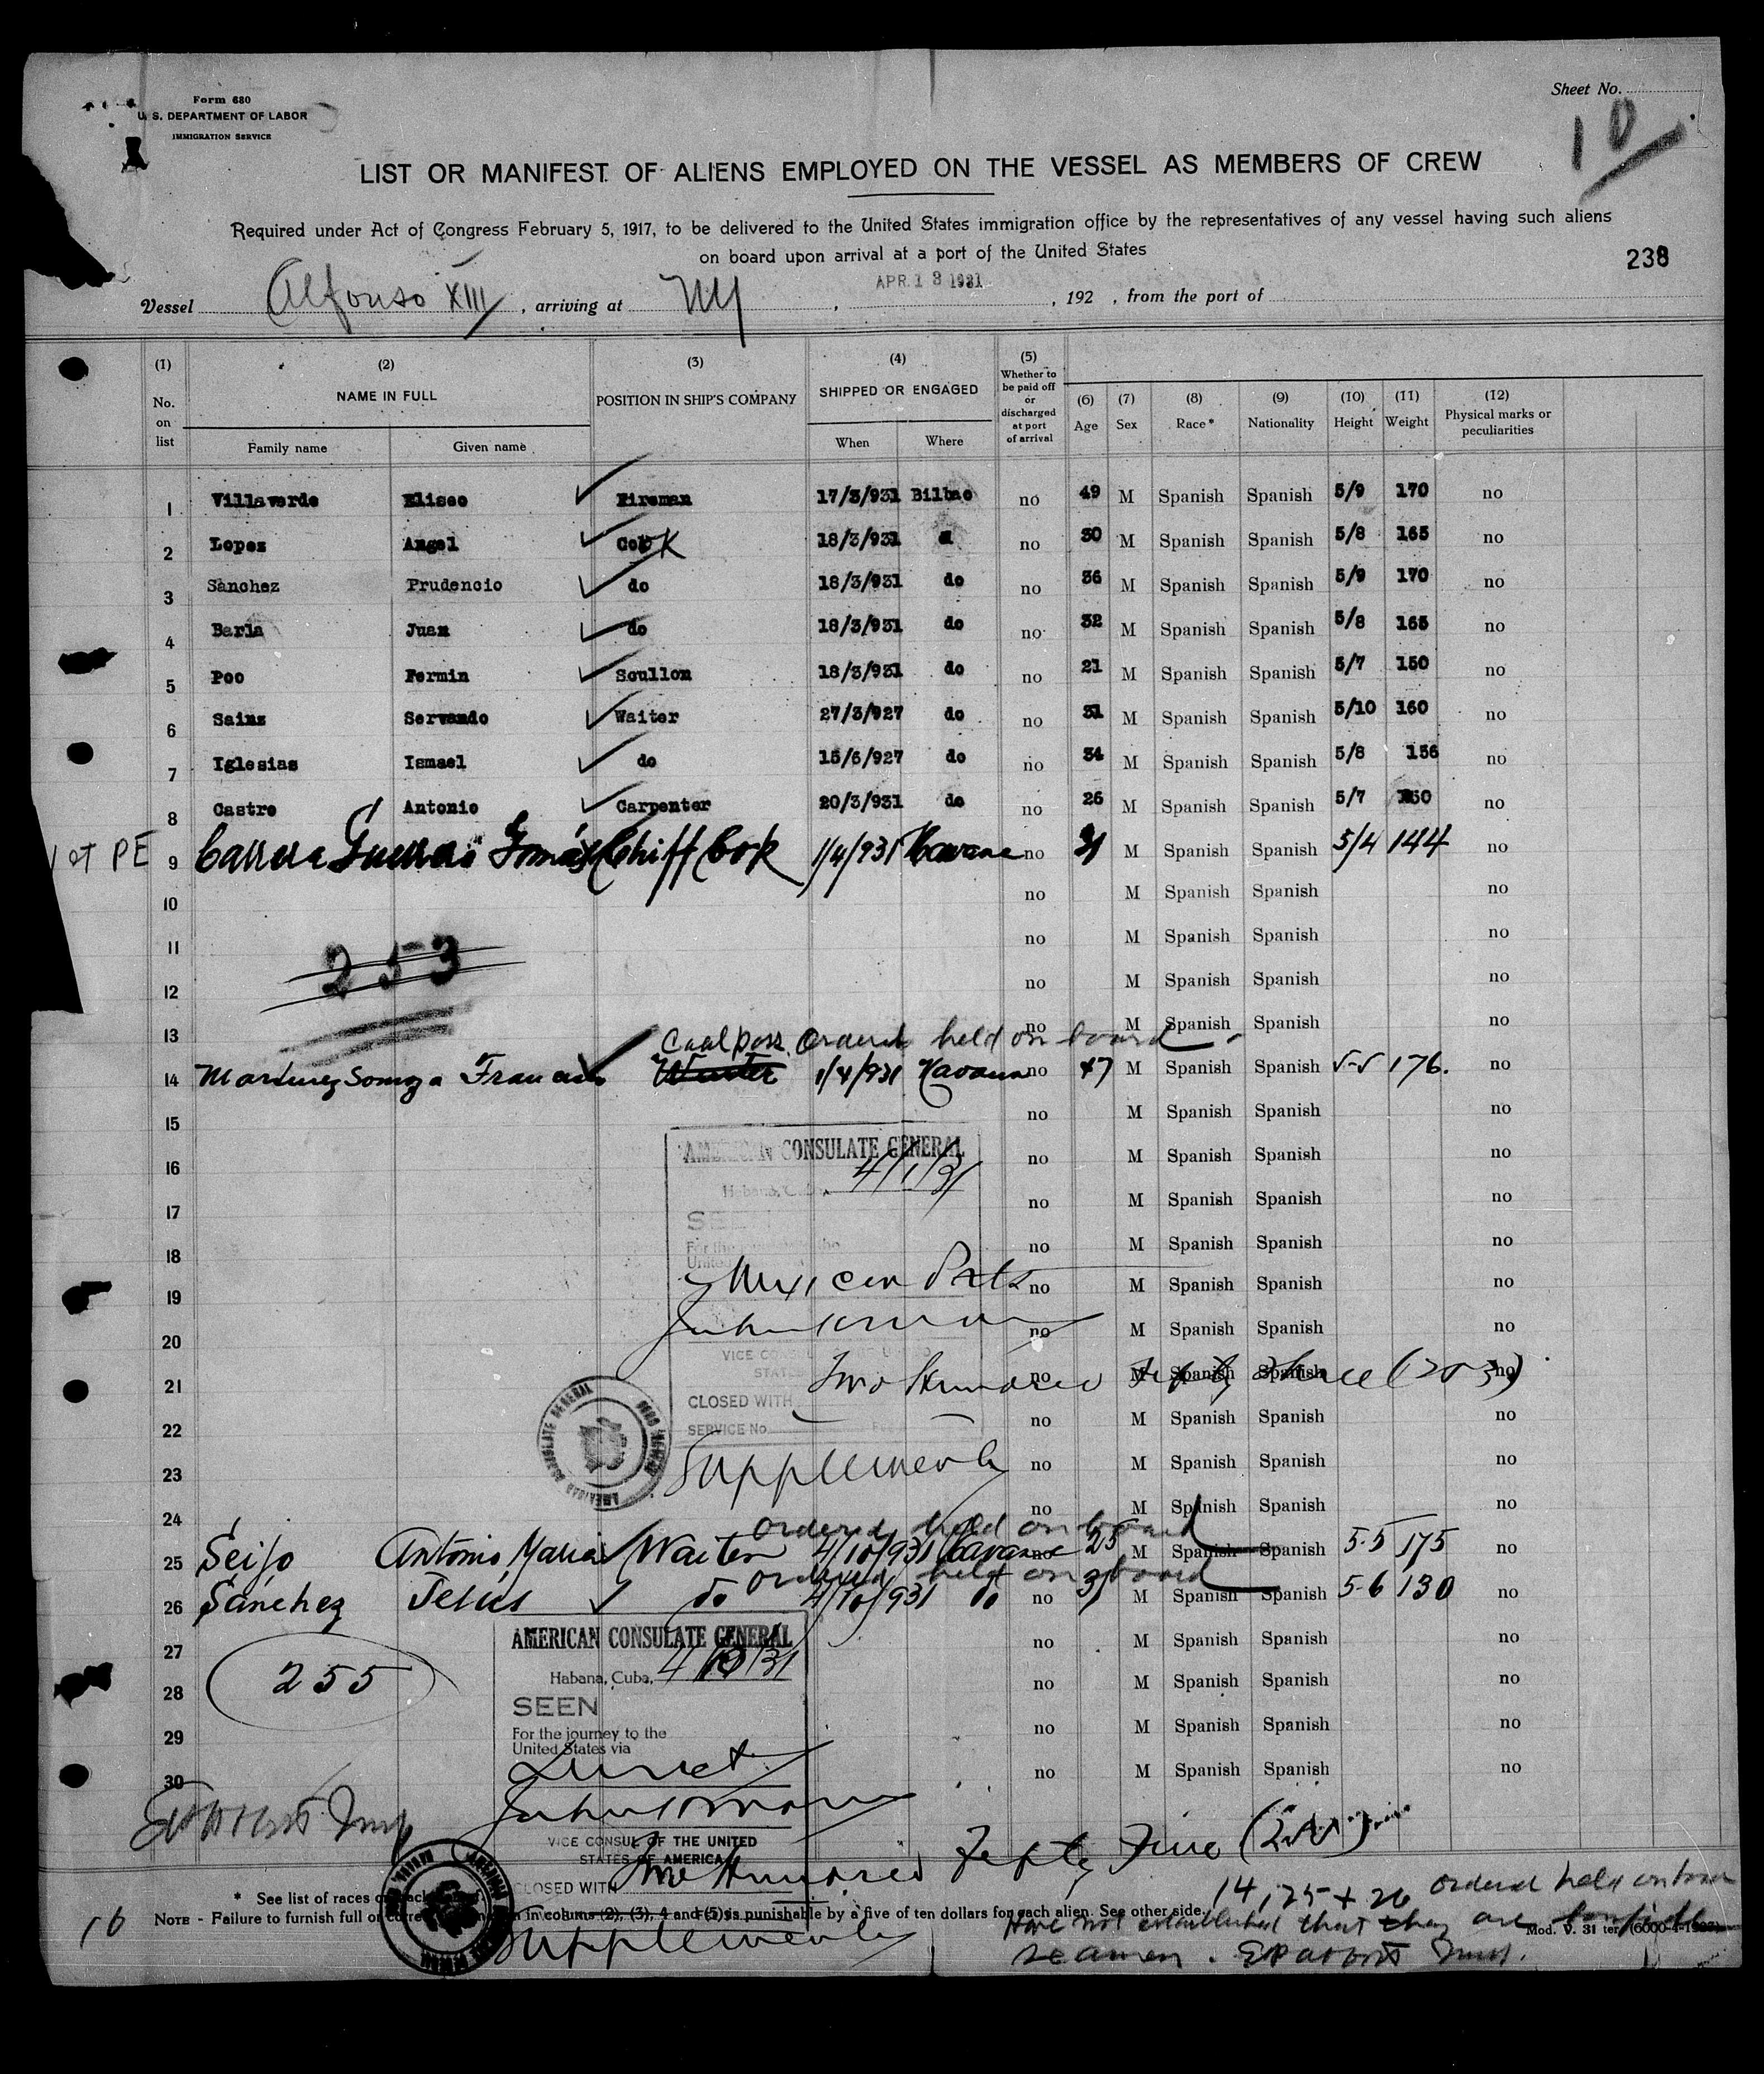 Form 680
U. S. DEPARTMENT OF LABOR
IMMIGRATION SERVICE
Sheet No.
10
LIST OR MANIFEST OF ALIENS EMPLOYED ON THE VESSEL AS MEMBERS OF CREW
Required under Act of Congress February 5, 1917, to be delivered to the United States immigration office by the representatives of any vessel having such aliens
on board upon arrival at a port of the United States
238
Vessel Alfonso XIII, arriving at NY, APR 13 1931, 192 , from the port of
(1) (2) (3) (4) (5) (6) (7) (8) (9) (10) (11) (12)
No. on list NAME IN FULL POSITION IN SHIP'S COMPANY SHIPPED OR ENGAGED Whether to be paid off or discharged at port of arrival Age Sex Race* Nationality Height Weight Physical marks or peculiarities
Family name Given name When Where
1 Villaverde Eliseo Fireman 17/3/931 Bilbao no 49 M Spanish Spanish 5/9 170 no
2 Lopez Angel Cook 18/3/931 no 30 M Spanish Spanish 5/8 165 no
3 Sanchez Prudencio do 18/3/931 do no 36 M Spanish Spanish 5/9 170 no
4 Baria Juan do 18/3/931 do no 32 M Spanish Spanish 5/8 165 no
5 Poo Fermin Scullon 18/3/931 do no 21 M Spanish Spanish 5/7 150 no
6 Sainz Servando Waiter 27/3/927 do no 31 M Spanish Spanish 5/10 160 no
7 Iglesias Ismael do 15/6/927 do no 34 M Spanish Spanish 5/8 156 no
8 Castro Antonio Carpenter 20/3/931 do no 26 M Spanish Spanish 5/7 150 no
PE 9 Carrera Tomás Chiff Cook 1/4/931 Havana no 31 M Spanish Spanish 5/4 144 no
10 no M Spanish Spanish no
11 no M Spanish Spanish no
253
12 no M Spanish Spanish no
13 no M Spanish Spanish no
Coalpass. Ordered held on board
14 Martinez Somoza Francisco Waiter 1/4/931 Havana no 47 M Spanish Spanish 5-5 176. no
15 no M Spanish Spanish no
AMERICAN CONSULATE GENERAL
16 no M Spanish Spanish no
Habana, Cuba, 4/1/31
17 no M Spanish Spanish no
SEEN
18 no M Spanish Spanish no
Mexican Ports
19 no M Spanish Spanish no
20 no M Spanish Spanish no
VICE CONSUL
21 Two Hundred Fifty three (253) no M Spanish Spanish no
CLOSED WITH
22 no M Spanish Spanish no
SERVICE No.
23 Supplement no M Spanish Spanish no
24 no M Spanish Spanish no
Ordered held on board
25 Seijo Antonio Maria Waiter 4/10/931 Havana no 25 M Spanish Spanish 5-5 175 no
Ordered held on board
26 Sánchez Jesús do 4/10/931 do no 31 M Spanish Spanish 5-6 130 no
27 no M Spanish Spanish no
AMERICAN CONSULATE GENERAL
Habana, Cuba, 4/10/31
255
28 no M Spanish Spanish no
SEEN
29 no M Spanish Spanish no
For the journey to the
United States via
Direct
30 no M Spanish Spanish no
VICE CONSUL OF THE UNITED
STATES OF AMERICA
CLOSED WITH Two Hundred Fifty Five (255)
Supplement
* See list of races on back
NOTE - Failure to furnish full or correct information in column (2), (3), 4 and (5) is punishable by a five of ten dollars for each alien. See other side.
Mod. V. 31 ter
14, 25 + 26 ordered held on board
Have not established that they are bonafide
seamen.